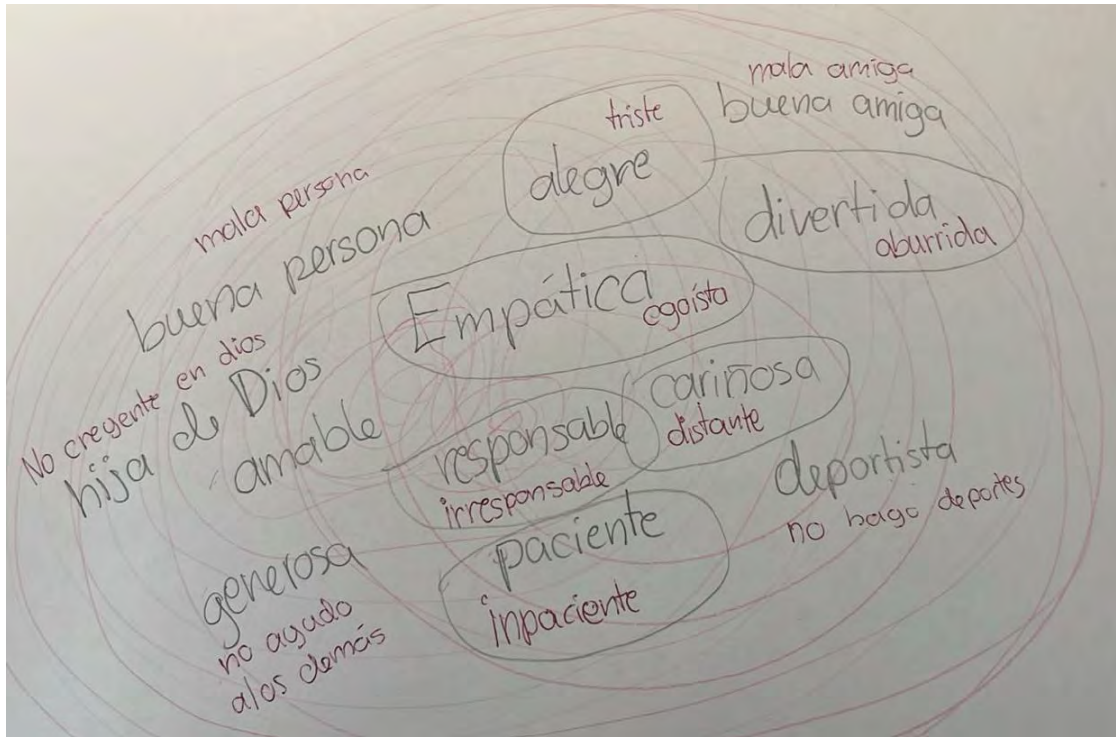 mala amiga
buena amiga
triste
alegre
divertida
aburrida
mala persona
buena persona
Empática
egoísta
No creyente en dios
hija de Dios
amable
cariñosa
distante
responsable
irresponsable
deportista
no hago deportes
paciente
inpaciente
generosa
no ayudo
alos demás